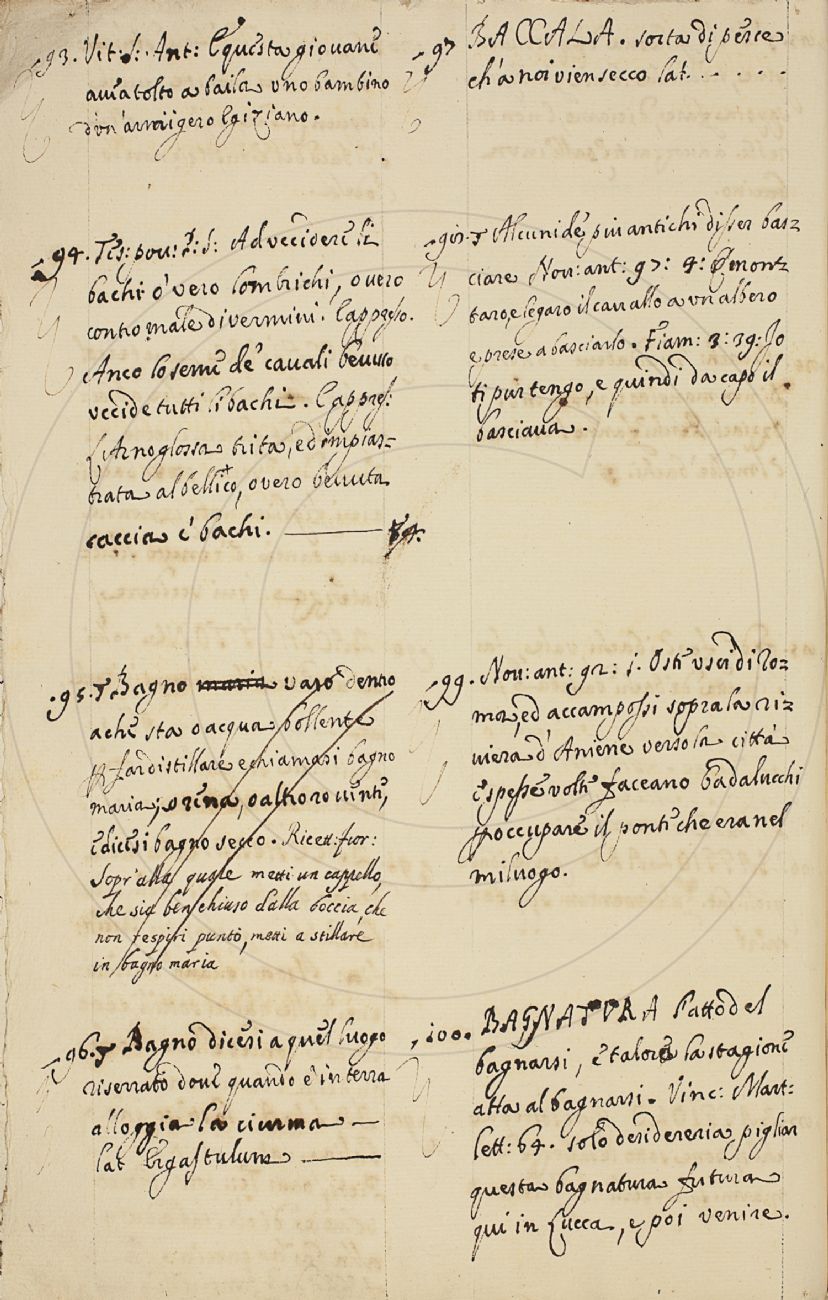 93. Vit: S: Ant: E questa giovane
avea tolto a baila uno bambino
d'un'armigero Egiziano.
94. Tes: pov: P: S: Ad uccidere li
bachi o vero lombrichi, overo
contro male di vermini. E appresso.
Anco lo seme de' cavoli bevuto
uccide tutti li bachi. E appres:
L'Arnoglossa trita, ed impias-
trata al bellico, overo bevuta
caccia e' bachi.
95. Bagno maria vaso dentro
a che sta o acqua bollente
p far distillare e chiamasi bagno
maria; o rena, o altro rovente,
e dicesi bagno secco. Ricett: fior:
Sopr'alla quale metti un cappello,
che sia ben chiuso dalla boccia, che
non respiri punto, metti a stillare
in bagno maria
96. Bagno dicesi a quel luogo
riserrato dove quando è in terra
alloggia la ciurma
lat Ergastulum
97 BACCALA. sorta di pesce
ch'a noi vien secco lat. . . . .
98. Alcuni de' piu antichi disser bas-
ciare Nov: ant: 97: 4: Smont-
taro, e legaro il cavallo a un albero
e prese a basciarlo. Fiam: 3: 39: Io
ti pur tengo, e quindi da capo il
basciava.
99. Nov: ant: 92: 1. Oste uscì di Ro-
ma, ed accampossi sopra la ri-
viera d'Aniene verso la città
e spesse volte faceano badalucchi
p occupare il ponte che era nel
miluogo.
100. BAGNATURA L'atto del
bagnarsi, e talora la stagione
atta al bagnarsi. Vinc: Mart:
lett: 64. solo desidereria pigliar
questa bagnatura futura
qui in Lucca, e poi venire.